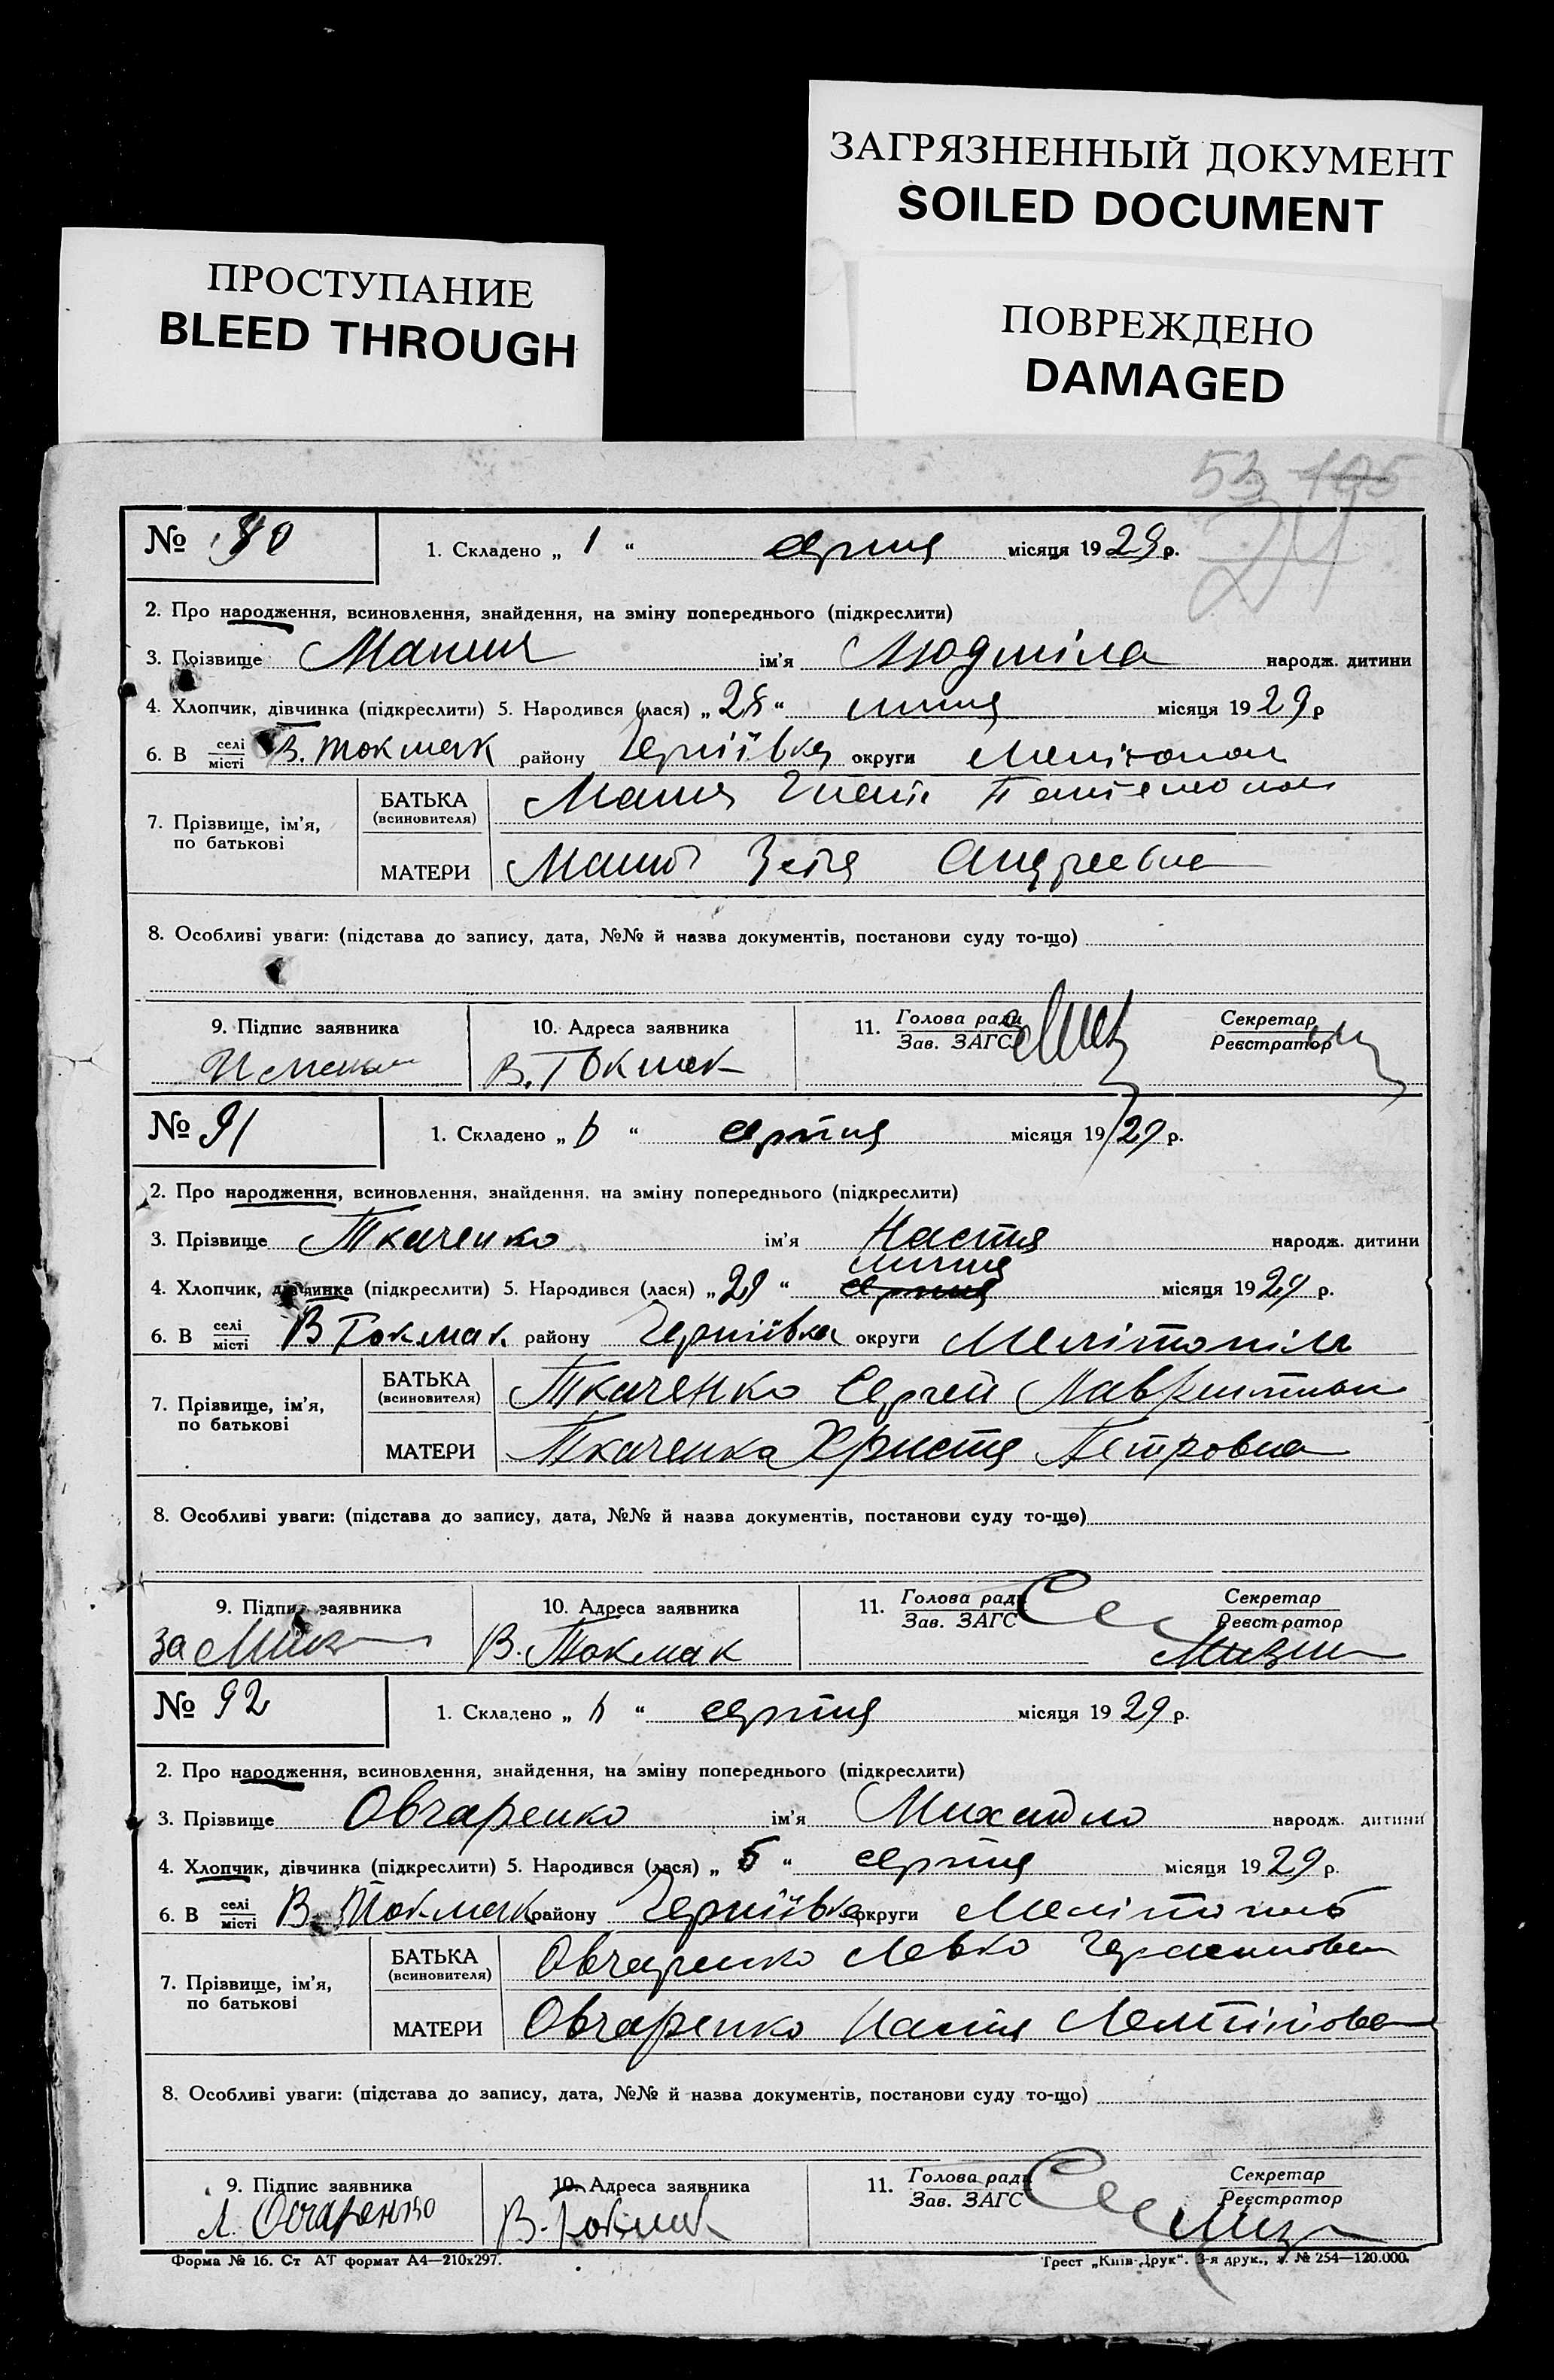 ЗАГРЯЗНЕННЫЙ ДОКУМЕНТ
SOILED DOCUMENT
ПРОСТУПАНИЕ
BLEED THROUGH
ПОВРЕЖДЕНО
DAMAGED
53
№ 90 1. Складено „ 1 “ серпня місяця 1929 р.
2. Про народження, всиновлення, знайдення, на зміну попереднього (підкреслити)
3. Прізвище ім'я Людміла народж. дитини
4. Хлопчик, дівчинка (підкреслити) 5. Народився (лася) „ 28 “ липня місяця 1929 р
6. В селі місті В. Токмак району Чернiївка округи Мелітополь
7. Прізвище, ім'я, по батькові
БАТЬКА (всиновителя)
МАТЕРИ Андреевна
8. Особливі уваги: (підстава до запису, дата, №№ й назва документів, постанови суду то-що)
9. Підпис заявника 10. Адреса заявника 11. Голова ради Зав. ЗАГС Секретар Реєстратор
В. Токмак
№ 91 1. Складено „ “ серпня місяця 1929 р.
2. Про народження, всиновлення, знайдення, на зміну попереднього (підкреслити)
3. Прізвище Ткаченко ім'я Настя народж. дитини
липня
4. Хлопчик, дівчинка (підкреслити) 5. Народився (лася) „ 29 “ серпня місяця 1929 р.
6. В селі місті В Токмак району Чернiївка округи Мелітопіль
7. Прізвище, ім'я, по батькові
БАТЬКА (всиновителя) Ткаченко Сергей
МАТЕРИ Ткаченка Христя Петровна
8. Особливі уваги: (підстава до запису, дата, №№ й назва документів, постанови суду то-що)
9. Підпис заявника 10. Адреса заявника 11. Голова ради Зав. ЗАГС Секретар Реєстратор
за В. Токмак
№ 92 1. Складено „ “ серпня місяця 1929 р.
2. Про народження, всиновлення, знайдення, на зміну попереднього (підкреслити)
3. Прізвище Овчаренко ім'я Михайло народж. дитини
4. Хлопчик, дівчинка (підкреслити) 5. Народився (лася) „ 5 “ серпня місяця 1929 р.
6. В селі місті В. Токмак району Чернiївка округи Мелітопіль
7. Прізвище, ім'я, по батькові
БАТЬКА (всиновителя) Овчаренко Левко
МАТЕРИ Овчаренко Настя
8. Особливі уваги: (підстава до запису, дата, №№ й назва документів, постанови суду то-що)
9. Підпис заявника 10. Адреса заявника 11. Голова ради Зав. ЗАГС Секретар Реєстратор
Л. Овчаренко В. Токмак
Форма № 16. Ст АТ формат А4—210x297. Трест „Київ-Друк“. 3-я друк., з. № 254—120.000.